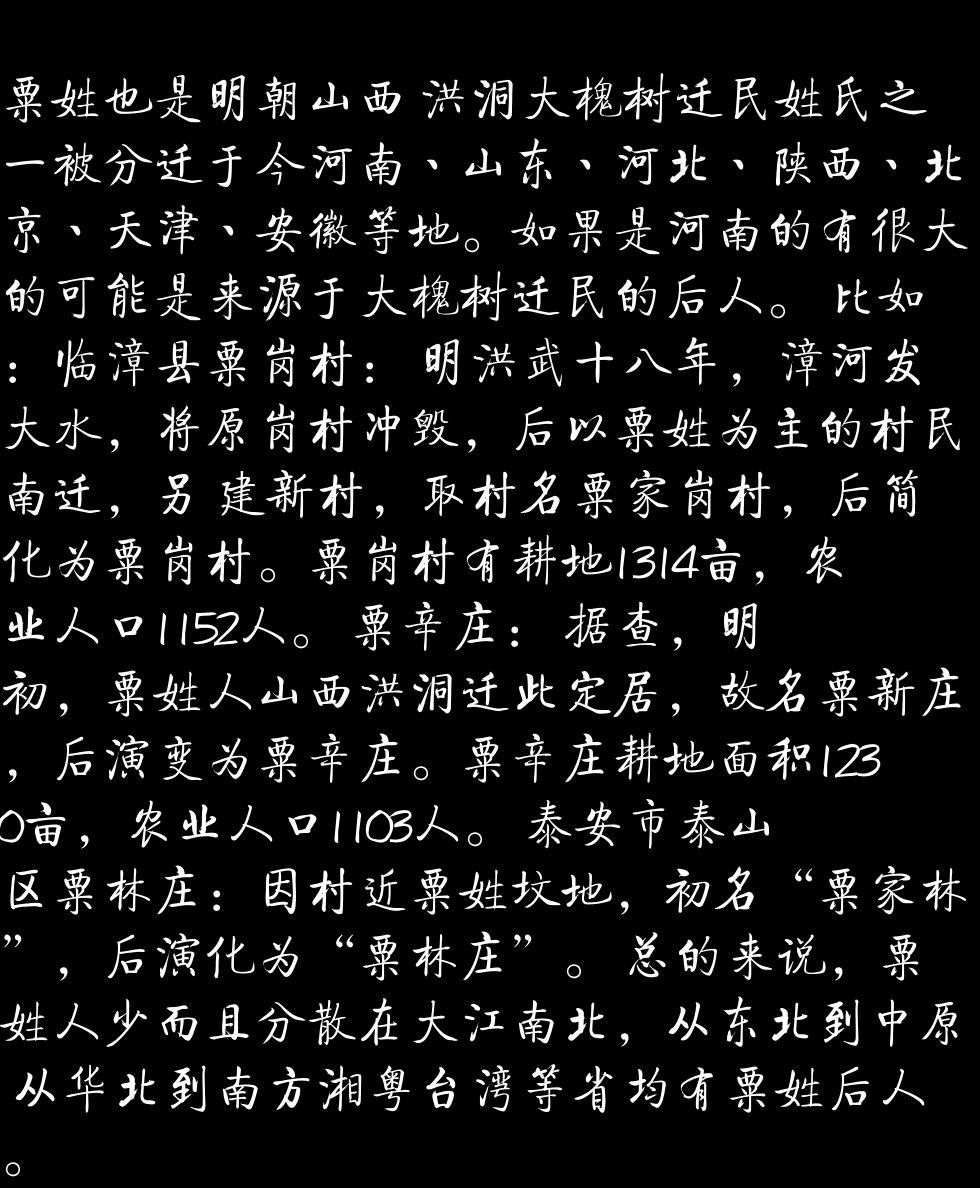 粟姓也是明朝山西 洪洞大槐树迁民姓氏之
一被分迁于今河南、山东、河北、陕西、北
京、天津、安徽等地。如果是河南的有很大
的可能是来源于大槐树迁民的后人。 比如
：临漳县粟岗村： 明洪武十八年，漳河发
大水，将原岗村冲毁，后以粟姓为主的村民
南迁，另 建新村，取村名粟家岗村，后简
化为粟岗村。粟岗村有耕地1314亩，农
业人口1152人。 粟辛庄： 据查，明
初，粟姓人山西洪洞迁此定居，故名粟新庄
，后演变为粟辛庄。粟辛庄耕地面积123
0亩，农业人口1103人。 泰安市泰山
区粟林庄：因村近粟姓坟地，初名“粟家林
”，后演化为“粟林庄”。 总的来说，粟
姓人少而且分散在大江南北，从东北到中原
从华北到南方湘粤台湾等省均有粟姓后人
。